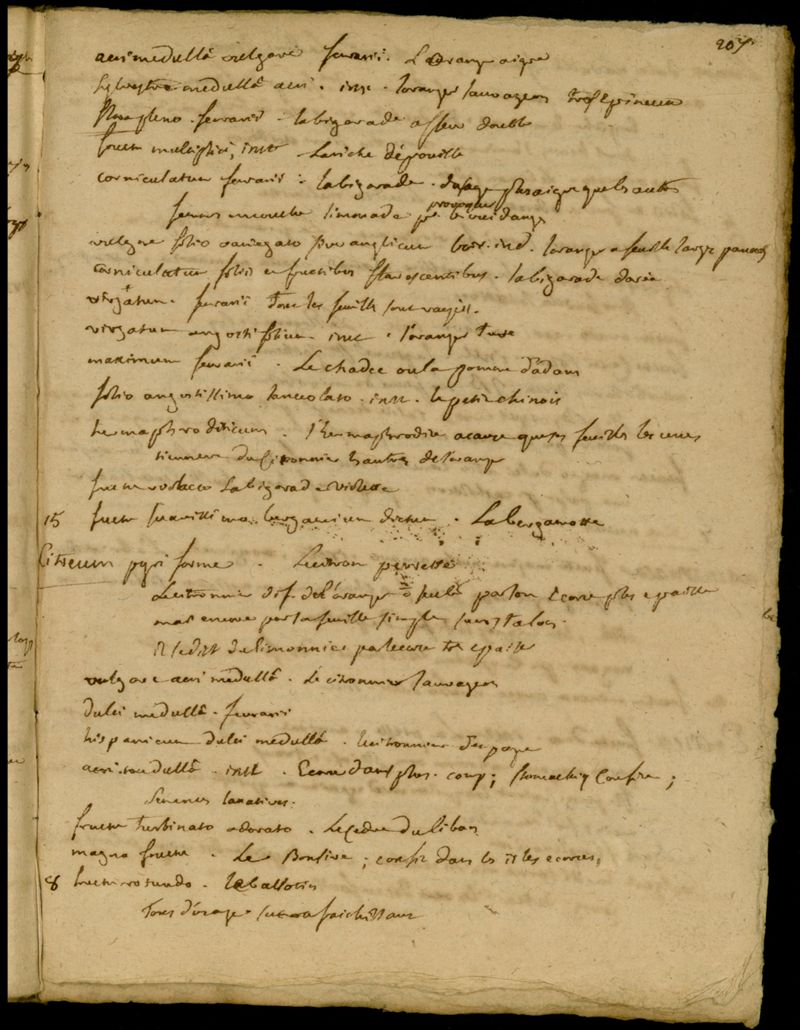 207
acri medullâ vulgare ferrarii. L'orange aigre
sylvestre medullâ acri. inst. l'oranger sauvageon très Epineux
flore pleno. ferrarii. la bigarade a fleur double
fructu multiplici, inst. La riche dépouille
corniculatum ferrarii. la bigarade. plus aigre que les autres
limonade provoquer
vulgare folio variegato sive anglicum. l'oranger a feuille large panaché
corniculatum foliis et fructibus flavescentibus. la bigarade
virgatum. ferrarii tous les feuilles sont rayés.
virgatum angustifolium inst. l'oranger turc
maximum ferrarii. Le chadec ou la pomme d'adam
folio angustissimo lanceolato. inst. le petit chinois
hermaphroditicum. l'hermaphrodite a cause que ses feuilles les unes
tiennent du Citronnier les autres de l'orange
fructu violaceo La bigarade violette
15 fructu suavissimo bergamium dictum. La bergamotte
Citreum pyri forme. Le citron perrette
Le citronnier dif. de l'oranger par son Ecorce plus epaisse
mais encore par sa feuille simple sans talon.
Il du limonnier par l'ecorce très epaisse
vulgare acri medullâ. Le citronnier sauvageon
dulci medullâ. ferrarii
hispanicum dulci medullâ. le citronnier d'espagne
acri medullâ. inst. Ecorce dans plus. comp; Confire;
Semences
fructu turbinato odorato. Le Cedre du liban
magno fructu. Le ; confit dans les isles ecorces,
8 fructu rotundo. le ballotin